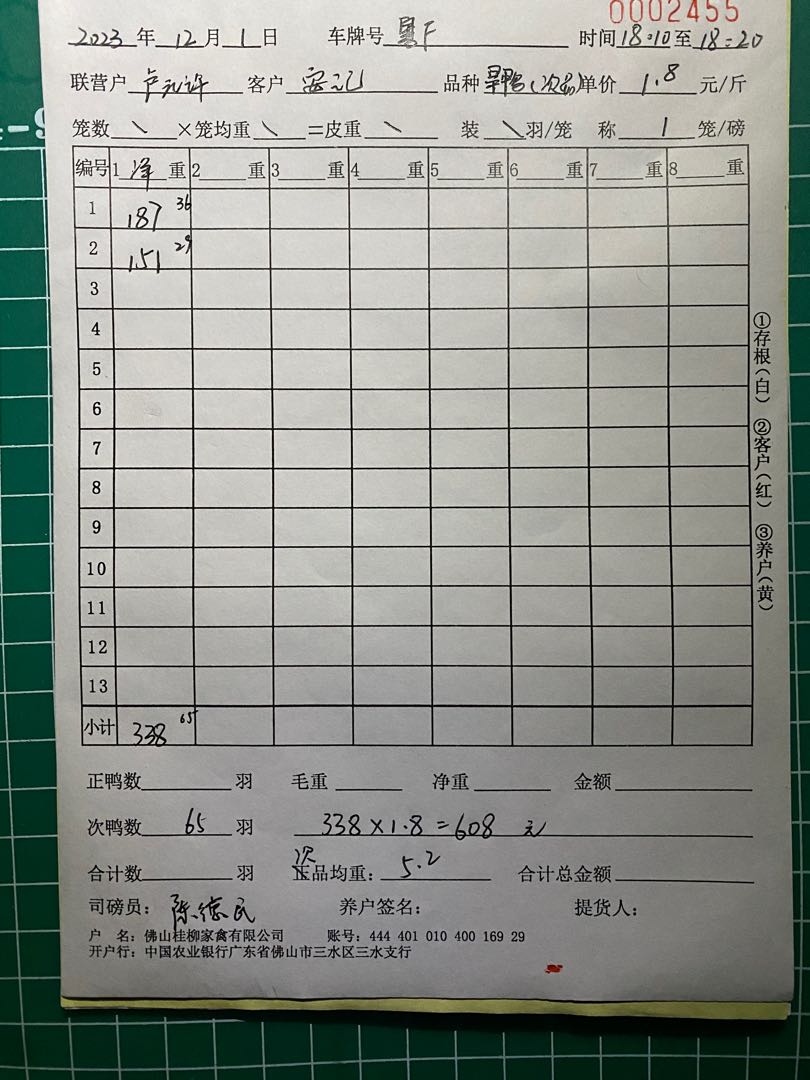 0002455
2023 年 12 月 1 日 车牌号 粤F 时间 18:10 至 18:20
联营户 卢允许 客户 安记 品种 (次品) 单价 1.8 元/斤
笼数 \ ×笼均重 \ =皮重 \ 装 \ 羽/笼 称 1 笼/磅
编号 1 净 重 2 重 3 重 4 重 5 重 6 重 7 重 8 重
1 187 36
2 151 29
3
4
5
6
7
8
9
10
11
12
13
小计 338 65
正鸭数 羽 毛重 净重 金额
次鸭数 65 羽 338×1.8=608 元
合计数 羽 次品均重: 5.2 合计总金额
司磅员: 陈德民 养户签名: 提货人:
户 名: 佛山桂柳家禽有限公司 账号: 444 401 010 400 169 29
开户行: 中国农业银行广东省佛山市三水区三水支行
①存根(白) ②客户(红) ③养户(黄)